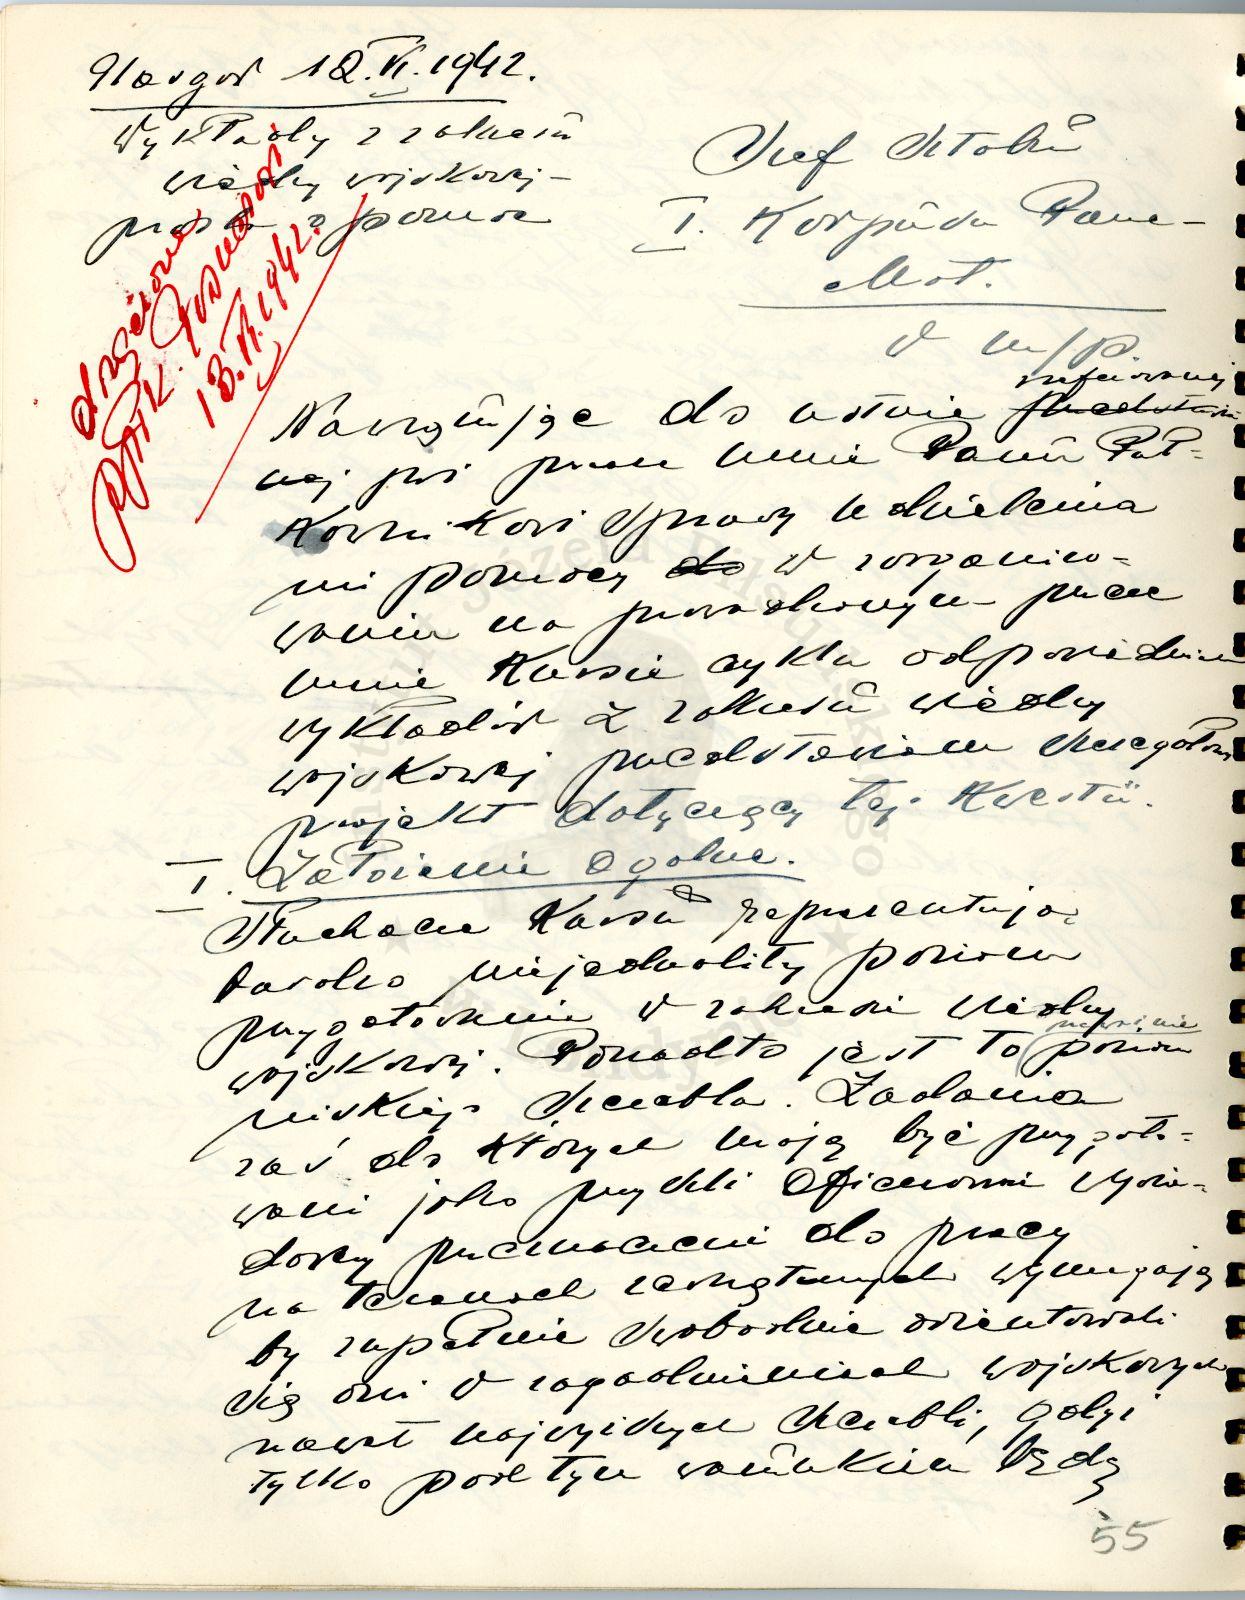 Glasgow 12.VI.1942.
Wykłady z zakresu
wiedzy wojskowej –
prośba o pomoc
doręczone
13.VI.1942.
Szef Sztabu
I. Korpusu Panc–
Mot.
w m/p
Nawiązując do ustnie referowanej
nej przez mnie Panu Puł-
kownikowi sprawy udzielenia
mi pomocy do w zorganizo-
waniu na prowadzonym przez
mnie kursie cyklu odpowiednich
wykładów z zakresu wiedzy
wojskowej przedstawiam szczegółowy
projekt dotyczący tej kwestii.
I. Założenie Ogólne.
Słuchacze Kursu reprezentują
bardzo niejednolity poziom
przygotowania w zakresie wiedzy
wojskowej. Ponadto jest to poziom
niskiego szczebla. Zadania
zaś do których mają być przygoto-
wani jako przyszli Oficerowie Wywia-
dowcy przeznaczeni do pracy
na terenach zewnętrznych wymagają
by zupełnie swobodnie orientowali
się oni w zagadnieniach wojskowych
nawet najwyższych szczebli, gdyż
tylko pod tym warunkiem będą
55
Józefa Piłsudskiego